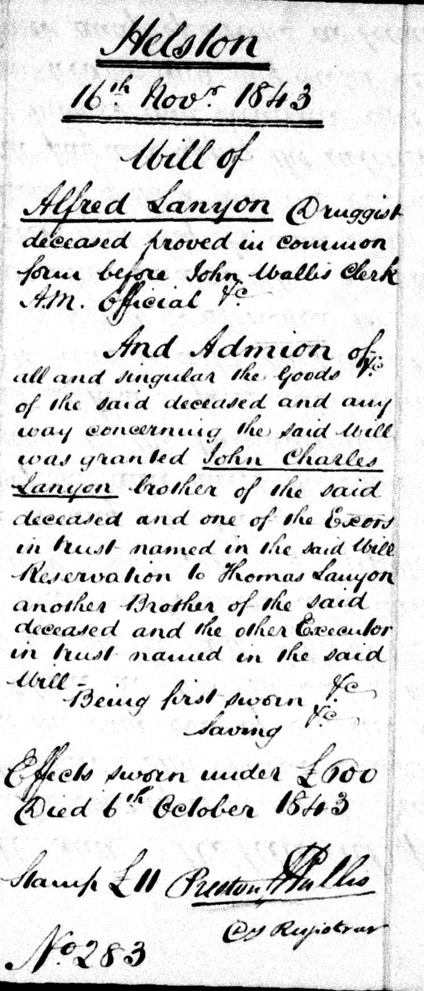 Helston
16th Novr 1843
Will of
Alfred Lanyon Druggist
deceased proved in common
form before John Wallis Clerk
A.M. Official &c
And Admion of
all and singular the Goods &c
of the said deceased and any
way concerning the said Will
was granted John Charles
Lanyon brother of the said
deceased and one of the Exors
in trust named in the said Will
Reservation to Thomas Lanyon
another Brother of the said
deceased and the other Executor
in trust named in the said
Will -
Being first sworn &c
Saving &c
Effects sworn under £600
Died 6th October 1843
Stamp £11 Preston Wallis
Registrar
No 283